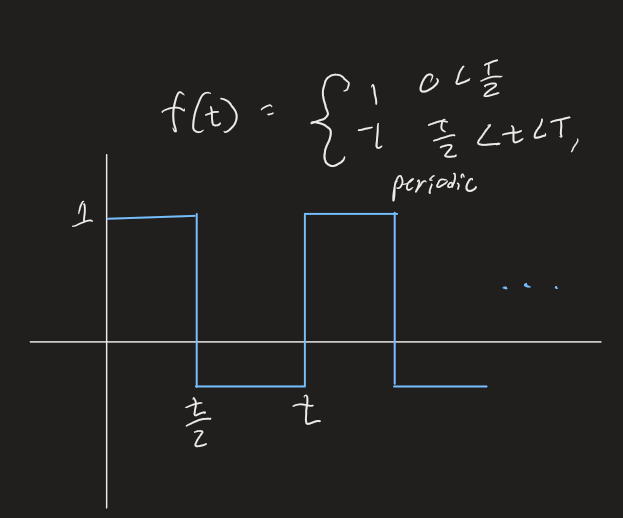 f(t) = { 1 0 < T/2
-1 T/2 < t < T,
periodic
1
t/2 t
...